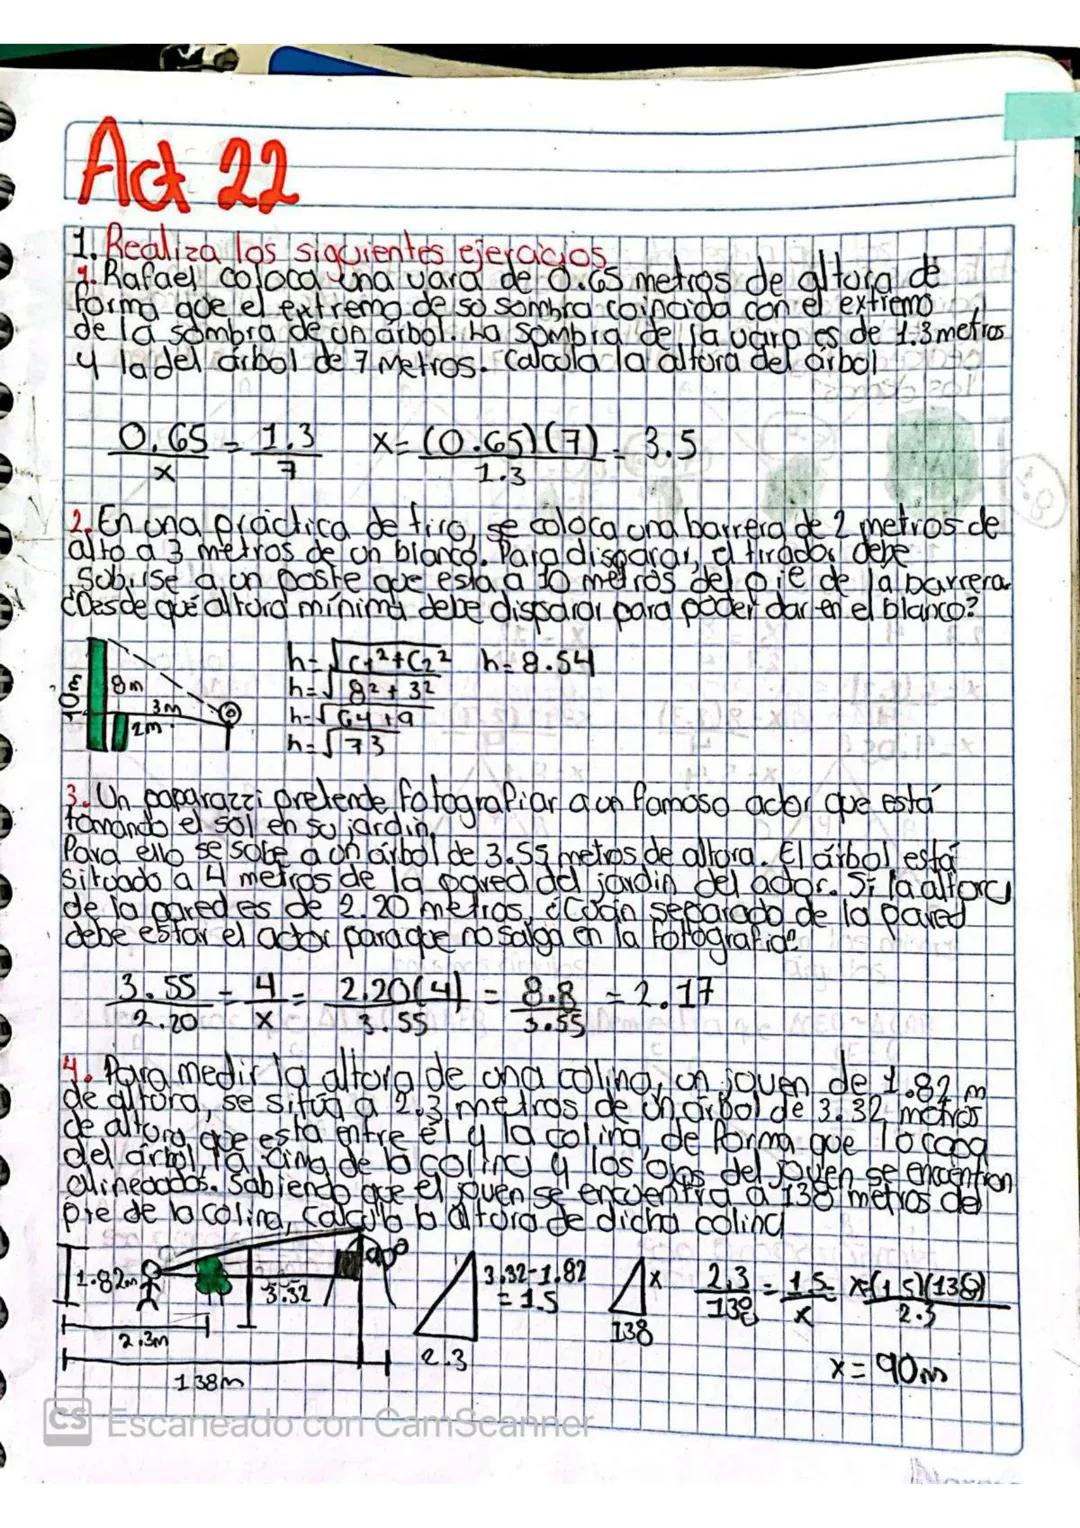 Act 22
1. Realiza los siguientes ejercicios
1. Rafael coloca una vara de 0.65 metros de altura de
forma que el extremo de su sombra coincida con el extremo
de la sombra de un árbol. La sombra de la vara es de 1.3 metros
y la del árbol de 7 metros. Calcula la altura del árbol
0.65/x = 1.3/7 x= (0.65)(7)/1.3 = 3.5
2. En una práctica de tiro, se coloca una barrera de 2 metros de
alto a 3 metros de un blanco. Para disparar, el tirador debe
subirse a un poste que está a 10 metros del pie de la barrera
¿Desde qué altura mínima debe disparar para poder dar en el blanco?
h=√C1²+C2² h=8.54
h=√8²+32
h=√64+9
h=√73
10m
8m
3m
2m
3. Un paparazzi pretende fotografiar a un famoso actor que está
tomando el sol en su jardín.
Para ello se sube a un árbol de 3.55 metros de altura. El árbol está
situado a 4 metros de la pared del jardín del actor. Si la altura
de la pared es de 2.20 metros, ¿Cuán separado de la pared
debe estar el actor para que no salga en la fotografía?
3.55/2.20 = 4/x = 2.20(4)/3.55 = 8.8/3.55 = 2.17
4. Para medir la altura de una colina, un joven de 1.82 m
de altura, se sitúa a 2.3 metros de un árbol de 3.32 metros
de altura, que está entre él y la colina, de forma que la copa
del árbol, la cima de la colina y los ojos del joven se encuentran
alineados. Sabiendo que el joven se encuentra a 138 metros del
pie de la colina, calcula la altura de dicha colina
1.82m
3.32
90°
2.3m
138m
3.32-1.82
= 1.5
2.3
x
138
2.3/138 = 1.5/x x=(1.5)(138)/2.3
x= 90m
CS Escaneado con CamScanner